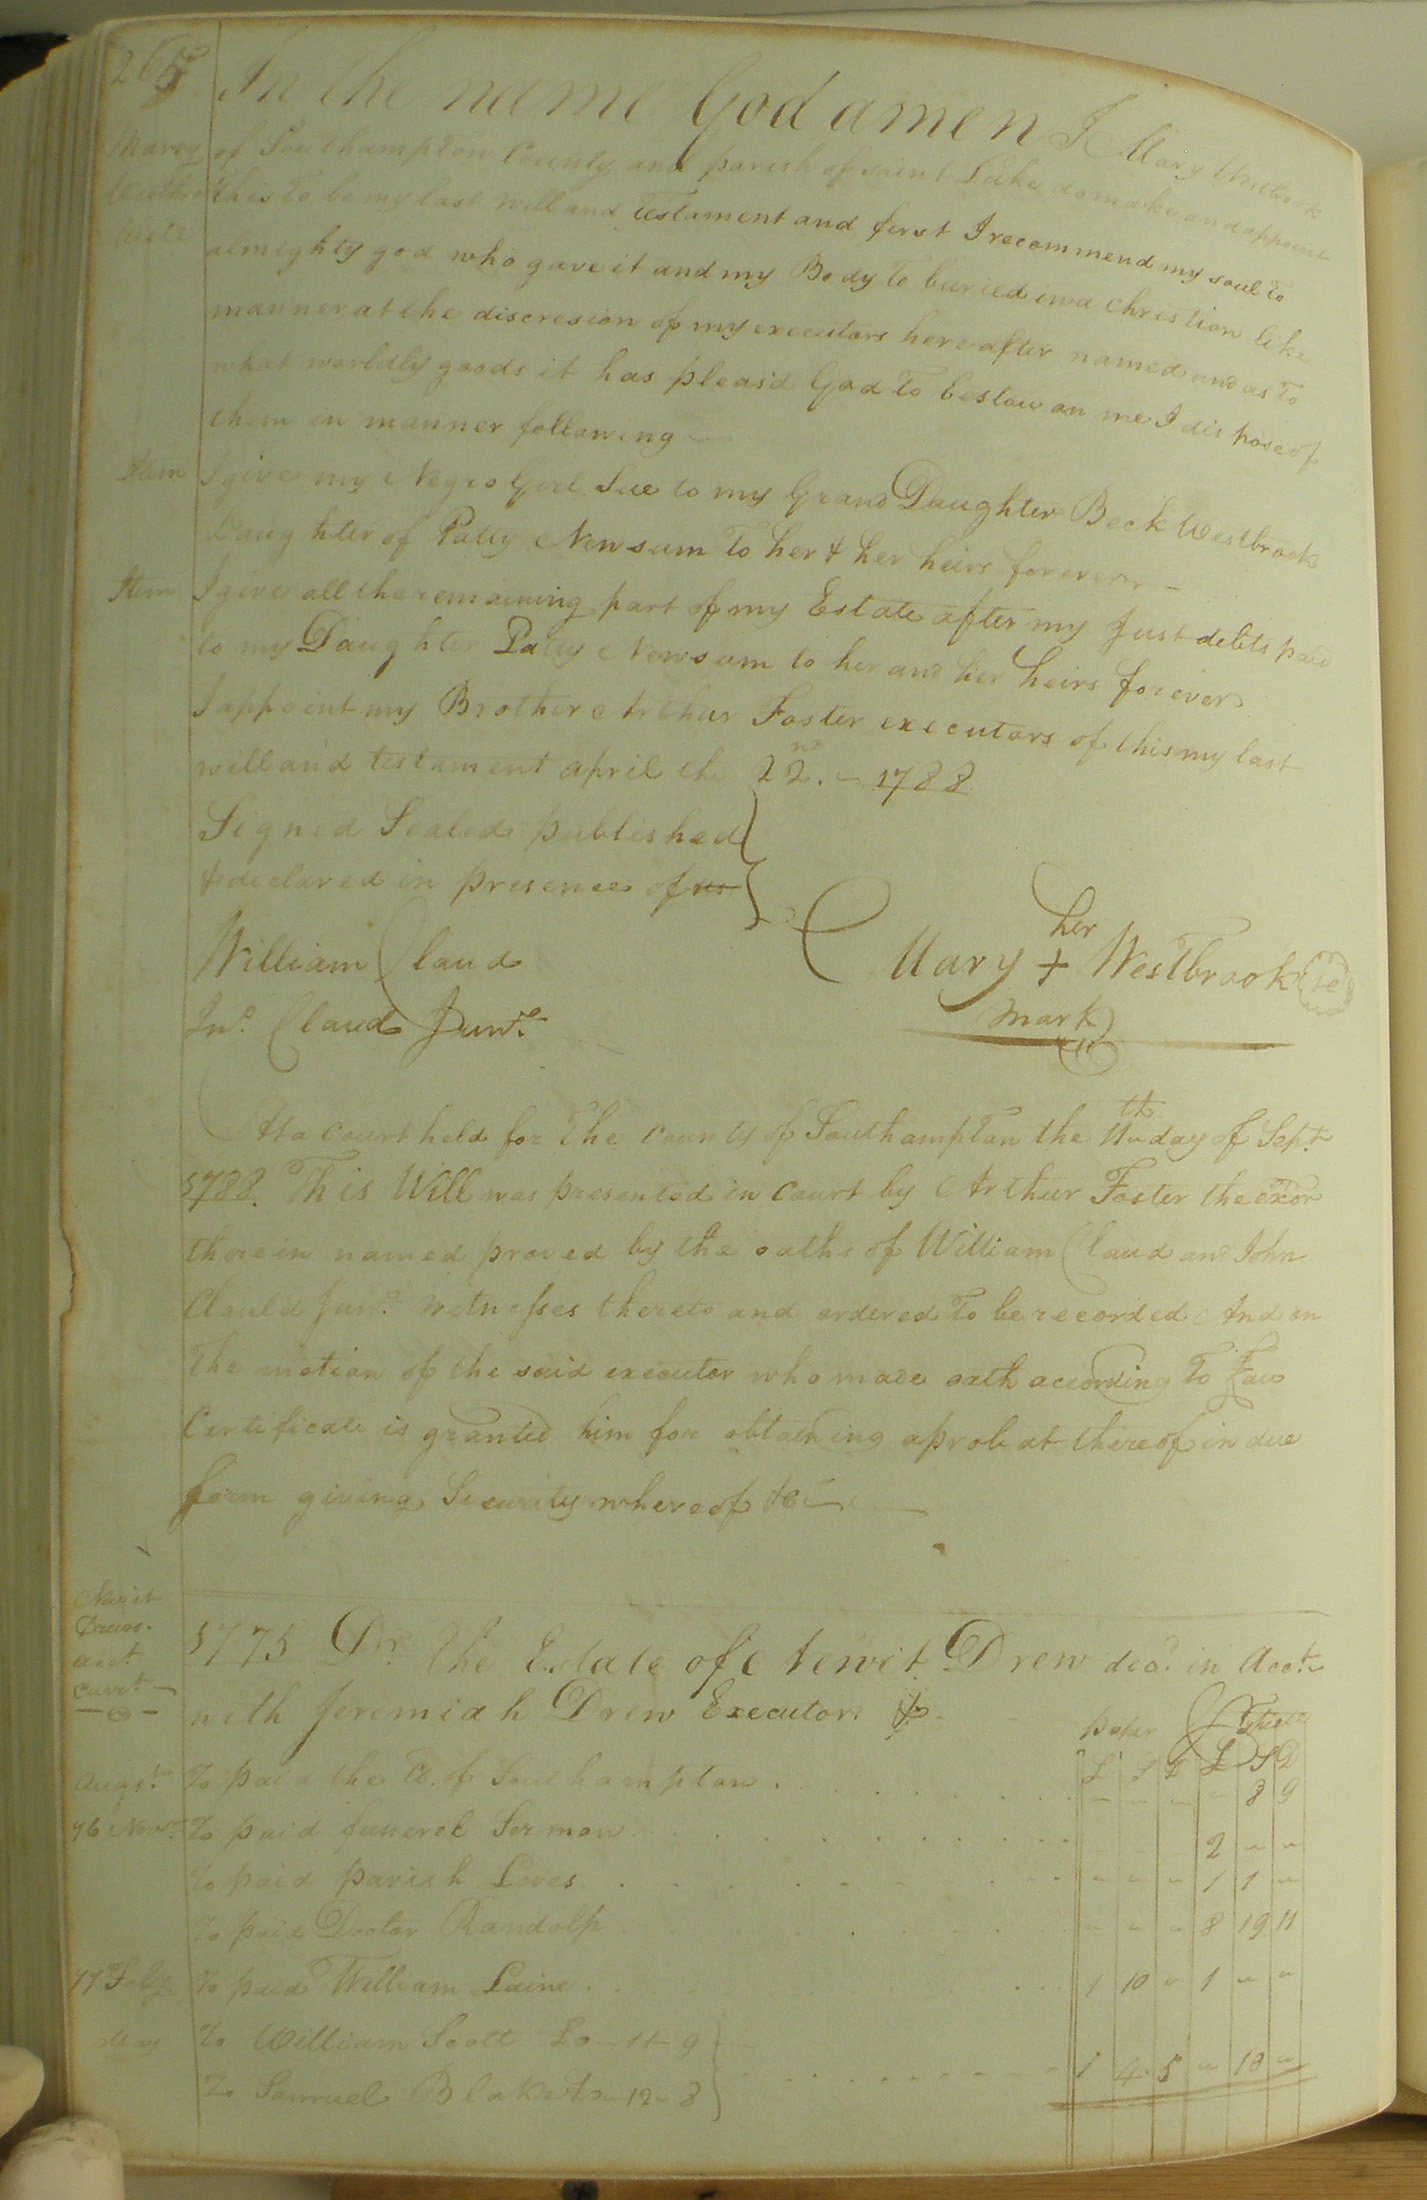 In the name God amen I Mary Westbrook
Mary of Southampton County and parish of saint Luke do make and appoint
this to be my last will and testament and first I recommend my soul to
almighty god who gave it and my Body to buried in a christion like
manner at the discresion of my executors hereafter named and as to
what worldly goods it has pleasd God to bestow on me I dispose of
them in manner following
Item I give my Negro Girl Sue to my Grand Daughter Beck Westbrook
Daughter of Patty Newsum to her & her heirs forever
Item I give all the remaining part of my Estate after my Just debts paid
to my Daughter Patty Newsum to her and her heirs forever
I appoint my Brother Arthur Foster executors of this my last
will and testament april the 22nd. 1788
Signed Sealed published
& declared in presence of us
her
William Claud Mary + Westbrook
Jno. Claud Junr. mark
At a court held for the county of Southampton the 11th day of Sept.
1788. This Will was presented in court by Arthur Foster the exor
therein named proved by the oaths of William Claud and John
Clauld Junr. Witnesses thereto and ordered to be recorded And on
the motion of the said executor who made oath according to Law
Certificate is granted him for obtaining a probat thereof in due
form giving Security whereof &c
Newit
Drews.
acct.
Curt.
1775 Dr. The Estate of Newit Drew decd. in Acct.
with Jeremiah Drew Executor
paper Specie
£ S D £ S D
Augst. To paid the Co. of Southampton 8 9
76 Novr. To paid funerel Sermon 2 " "
To paid parish Leves " " " 1 1 "
To paid Doctor Randolp " " " 8 19 11
77 Feby. To paid William Laine 1 10 " 1 " "
May To William Scott £0-11-9
To Samuel Blake 12-8 1 4 5 " 10 "